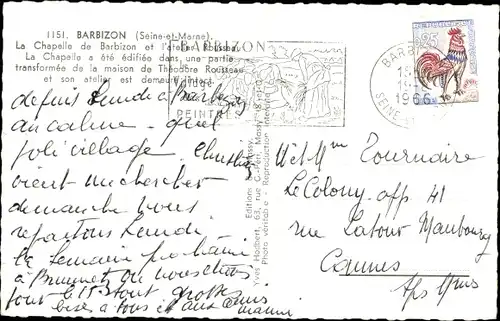 1151. BARBIZON (Seine-et-Marne).
La Chapelle de Barbizon et l'atelier Rousseau.
La Chapelle a été édifiée dans une partie
transformée de la maison de Théodore Rousseau
et son atelier est demeuré intact.
depuis lundi à Barbizon
au calme - quel
joli village.
vient me chercher
dimanche nous
repartons lundi
la semaine prochaine
à
tout le 15 Août grosses
bises à tous et aux amis
BARBIZON
Village
PEINTRES
Editions
Yves Hodbert, 63, rue C.-Péri, Massy
Photo véritable - Reproduction interdite
BARBIZON
1966
SEINE-ET-
0,25
Mr et Mme Tournaire
Le Colony. app 41
rue Latour Maubourg
Cannes
Alpes Mmes